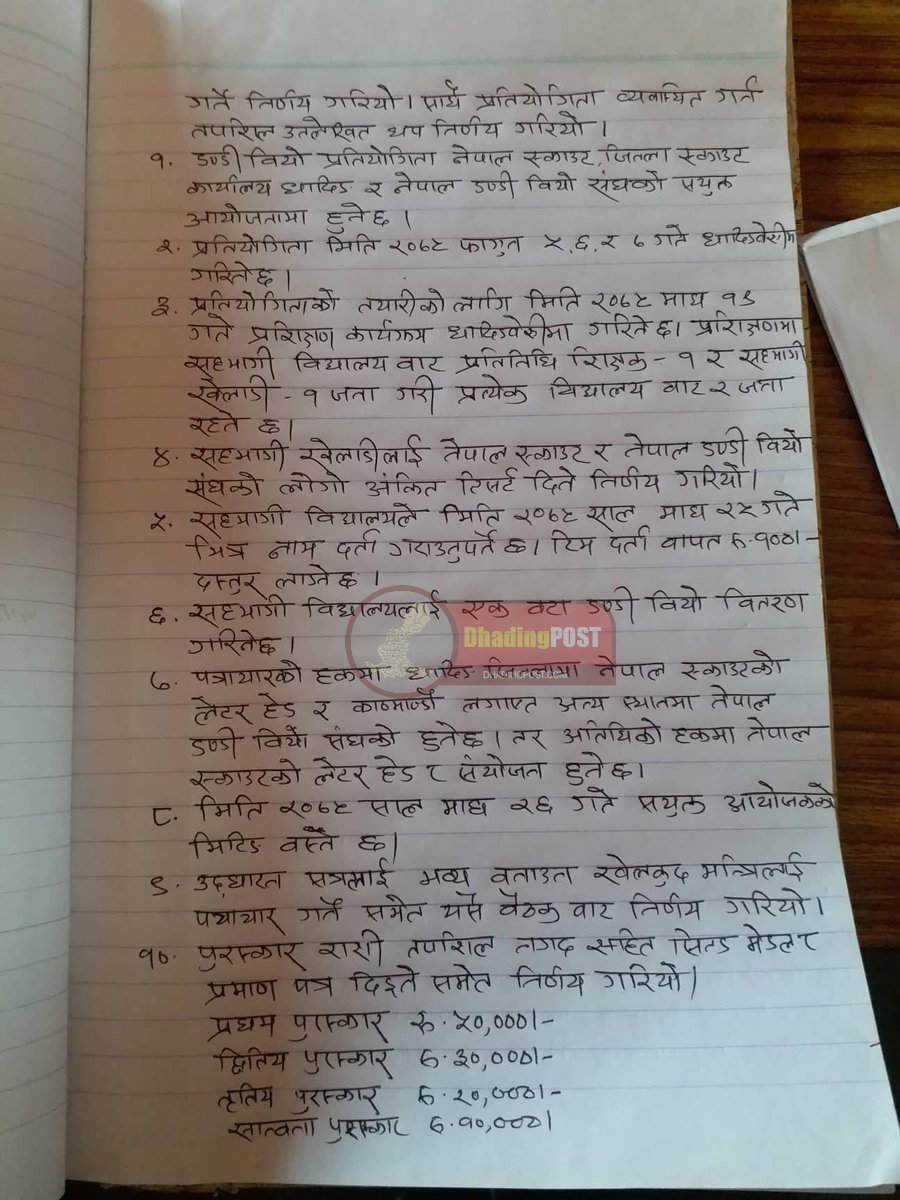 गर्ने निर्णय गरियो । साथै प्रतियोगिता व्यवस्थित गर्न
तपशिल उल्लेखित थप निर्णय गरियो ।
१. डण्डी वियो प्रतियोगिता नेपाल स्काउट, जिल्ला स्काउट
कार्यालय धादिङ र नेपाल डण्डी वियो संघको सयुक्त
आयोजनामा हुनेछ ।
२. प्रतियोगिता मिति २०७९ फागुन ५, ६, र ७ गते धादिङवेसीमा
गरिनेछ ।
३. प्रतियोगिताको तयारीको लागि मिति २०७९ माघ १९
गते प्रशिक्षण कार्यक्रम धादिङवेसीमा गरिनेछ । प्रशिक्षणमा
सहभागी विद्यालय वाट प्रतिनिधि शिक्षक - १ र सहभागी
खेलाडी - १ जना गरी प्रत्येक विद्यालय वाट २ जना
रहने छ ।
४. सहभागी खेलाडीलाई नेपाल स्काउट र नेपाल डण्डी वियो
संघको लोगो अंकित टिसर्ट दिने निर्णय गरियो ।
५. सहभागी विद्यालयले मिति २०७९ साल माघ २५ गते
भित्र नाम दर्ता गराउनुपर्ने छ । टिम दर्ता वापत रु. १०००।-
दस्तुर लाग्नेछ ।
६. सहभागी विद्यालयलाई एक वटा डण्डी वियो वितरण
गरिनेछ ।
DhadingPOST
DHADINGPOST.COM
७. पत्राचारको हकमा धादिङ जिल्लामा नेपाल स्काउटको
लेटर हेड र काठमाण्डौं लगाएत अन्य स्थानमा नेपाल
डण्डी वियो संघको हुनेछ । तर अतिथिको हकमा नेपाल
स्काउटको लेटर हेड र संयोजन हुनेछ ।
८. मिति २०७९ साल माघ २६ गते सयुक्त आयोजकको
मिटिङ वस्ने छ ।
९. उद्घाटन सत्रलाई भव्य वनाउन खेलकुद मन्त्रिलाई
पत्राचार गर्ने समेत यसै वैठक वाट निर्णय गरियो ।
१०. पुरस्कार रासी तपशिल नगद सहित सिल्ड मेडल र
प्रमाण पत्र दिइने समेत निर्णय गरियो ।
प्रथम पुरस्कार रु. ५०,०००।-
द्वितिय पुरस्कार रु. ३०,०००।-
तृतिय पुरस्कार रु. २०,०००।-
सान्त्वना पुरस्कार रु. १०,०००।